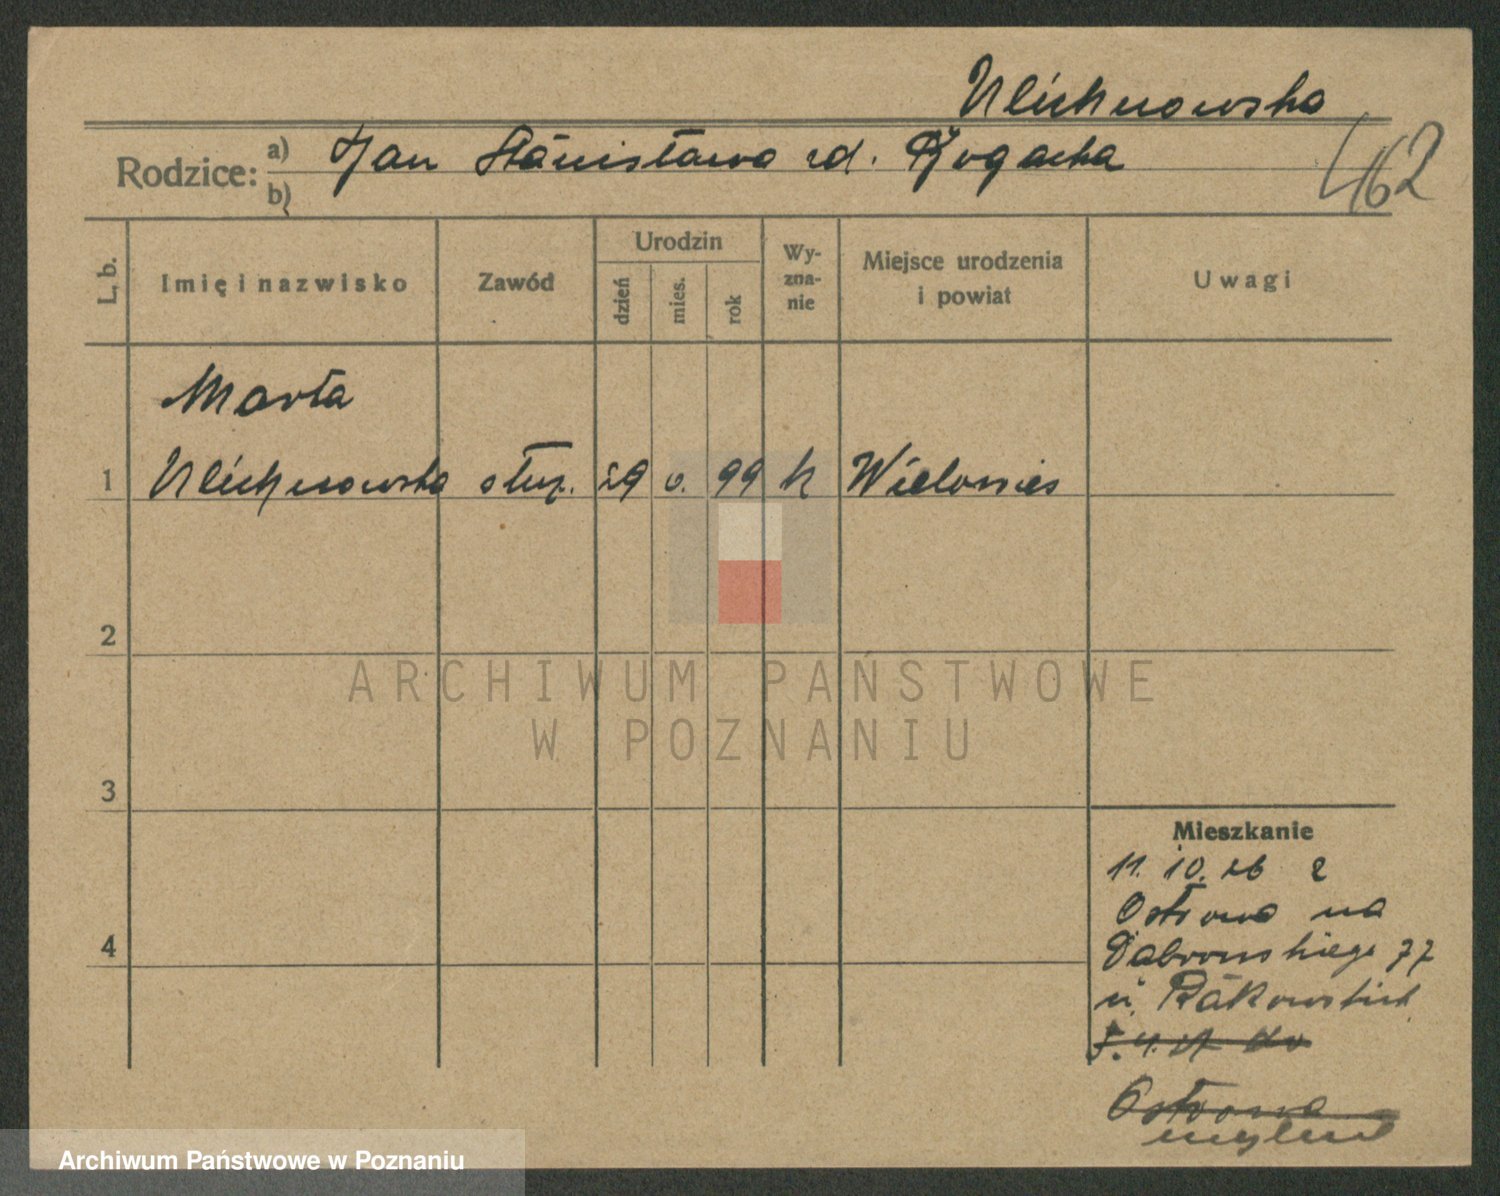 Ulichnowska
Rodzice: a) Jan Stanisława zd. Rogacka
b)
462
L. b.
Imię i nazwisko
Zawód
Urodzin
dzień
mies.
rok
Wy-
zna-
nie
Miejsce urodzenia
i powiat
Uwagi
Marta
1 Ulichnowska służ. 29 6. 99 k Wielowies
2
3
4
Mieszkanie
11. 10. 26 z
Ostrowa na
Dabrowskiego 77
u. Rakowskich
5. 4. 27 do
Ostrowa
mylnie
ARCHIWUM PAŃSTWOWE
W POZNANIU
Archiwum Państwowe w Poznaniu